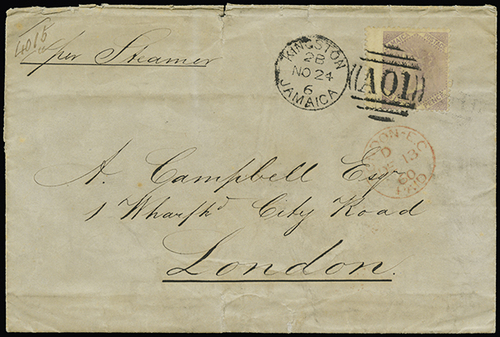 4015
per Steamer
KINGSTON
2B
NO 24
6
JAMAICA
A01
LONDON-E.C
D
13
60
PAID
A. Campbell Esqr
1 Wharfhd City Road
London.